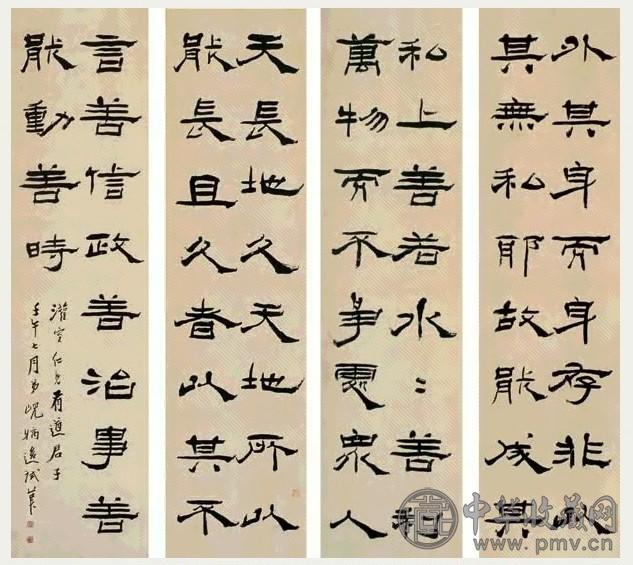 外其身而身存非以
其無私耶故能成其
私上善若水〻善利
萬物而不爭處眾人
天長地久天地所以
能長且久者以其不
言善信政善治事善
能動善時
仁兄有道君子
壬午七月弟
中华收藏网
www.pmv.cn